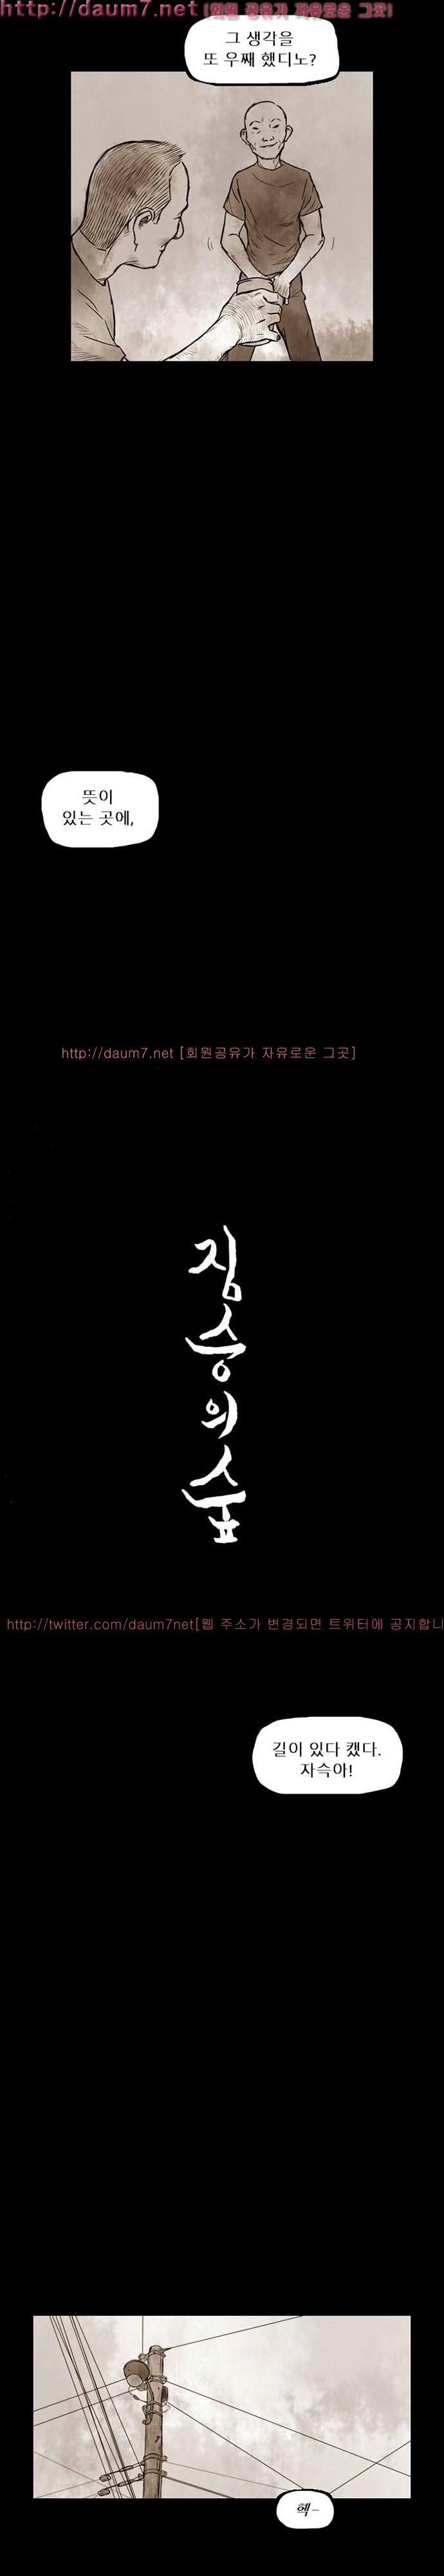 http://daum7.net (회원 공유가 자유로운 그곳)
그 생각을
또 우째 했디노?
뜻이
있는 곳에,
http://daum7.net [회원공유가 자유로운 그곳]
짐승의숲
http://twitter.com/daum7net[웹 주소가 변경되면 트위터에 공지합니
길이 있다 캤다.
자슥아!
헥-